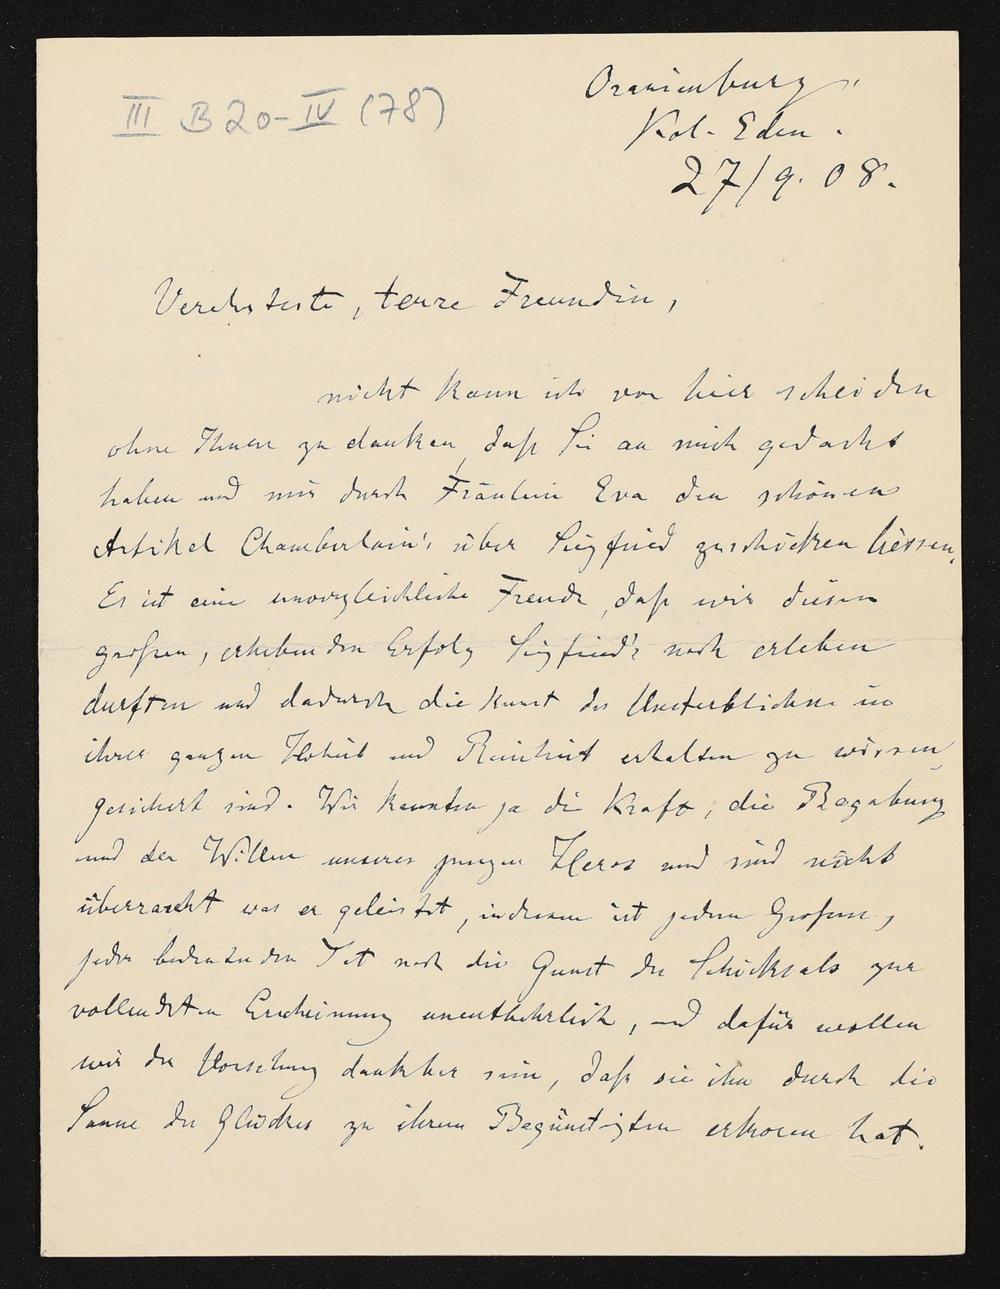 III B 20-IV (78)
Oranienburg.
Kol. Eden.
27/9. 08.
Verehrteste, teure Freundin,
nicht kann ich von hier scheiden
ohne Ihnen zu danken, daß Sie an mich gedacht
haben und mir durch Fräulein Eva den schönen
Artikel Chamberlain's über Siegfried zuschicken liessen.
Es ist eine unvergleichliche Freude, daß wir diesen
großen, erhebenden Erfolg Siegfried's noch erleben
durften und dadurch die Kunst des Unsterblichen in
ihrer ganzen Hoheit und Reinheit erhalten zu wissen,
gesichert sind. Wir kannten ja die Kraft, die Begabung
und den Willen unseres jungen Heros und sind nicht
überrascht was er geleistet, indessen ist jedem Großen,
jeder bedeutenden Tat noch die Gunst des Schicksals zur
vollendeten Erscheinung unentbehrlich, und dafür wollen
wir der Vorsehung dankbar sein, daß sie ihn durch die
Sonne des Glückes zu ihrem Begünstigten erkoren hat.